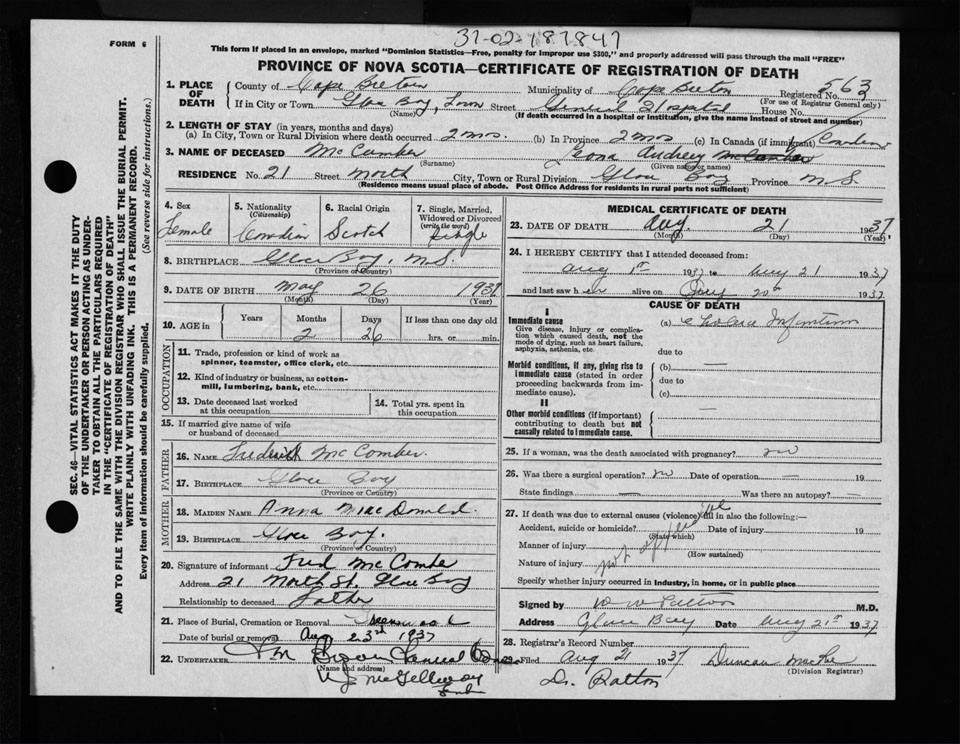 37-02-187847
FORM 6
This form if placed in an envelope, marked "Dominion Statistics—Free, penalty for improper use $300," and properly addressed will pass through the mail "FREE"
PROVINCE OF NOVA SCOTIA—CERTIFICATE OF REGISTRATION OF DEATH
SEC. 46—VITAL STATISTICS ACT MAKES IT THE DUTY
OF THE UNDERTAKER OR PERSON ACTING AS UNDER-
TAKER TO OBTAIN ALL THE PARTICULARS REQUIRED
IN THE "CERTIFICATE OF REGISTRATION OF DEATH"
AND TO FILE THE SAME WITH THE DIVISION REGISTRAR WHO SHALL ISSUE THE BURIAL PERMIT.
WRITE PLAINLY WITH UNFADING INK. THIS IS A PERMANENT RECORD.
Every item of information should be carefully supplied. (See reverse side for instructions.)
1. PLACE OF DEATH
County of Cape Breton Municipality of Cape Breton Registered No. 563
(For use of Registrar General only)
If in City or Town Glace Bay, Town Street General Hospital House No.
(Name) (If death occurred in a hospital or institution, give the name instead of street and number)
2. LENGTH OF STAY (in years, months and days)
(a) In City, Town or Rural Division where death occurred 2 mos. (b) In Province 2 mos (c) In Canada (if immigrant)
3. NAME OF DECEASED McComber Audrey
(Surname) (Given name or names)
RESIDENCE No. 21 Street North City, Town or Rural Division Glace Bay Province N.S.
(Residence means usual place of abode. Post Office Address for residents in rural parts not sufficient)
4. Sex Female
5. Nationality (Citizenship) Canadian
6. Racial Origin Scotch
7. Single, Married, Widowed or Divorced (write the word) Single
8. BIRTHPLACE Glace Bay, N.S.
(Province or Country)
9. DATE OF BIRTH May 26 1937
(Month) (Day) (Year)
10. AGE in Years Months 2 Days 26 If less than one day old hrs. or min.
OCCUPATION
11. Trade, profession or kind of work as spinner, teamster, office clerk, etc.
12. Kind of industry or business, as cotton-mill, lumbering, bank, etc.
13. Date deceased last worked at this occupation
14. Total yrs. spent in this occupation
15. If married give name of wife or husband of deceased
FATHER
16. NAME Frederick McComber
17. BIRTHPLACE Glace Bay
(Province or Country)
MOTHER
18. MAIDEN NAME Anna MacDonald.
19. BIRTHPLACE Glace Bay.
(Province or Country)
20. Signature of informant Fred McComber
Address 21 North St. Glace Bay
Relationship to deceased Father
21. Place of Burial, Cremation or Removal Greenwood
Date of burial or removal Aug 23rd 1937
22. UNDERTAKER
(Name and address)
MEDICAL CERTIFICATE OF DEATH
23. DATE OF DEATH Aug. 21 1937
(Month) (Day) (Year)
24. I HEREBY CERTIFY that I attended deceased from:
Aug 1st 1937 to Aug 21 1937
and last saw her alive on Aug 20th 1937
CAUSE OF DEATH
I
Immediate cause
Give disease, injury or complication which caused death, not the mode of dying, such as heart failure, asphyxia, asthenia, etc.
(a) Cholera Infantum
due to
Morbid conditions, if any, giving rise to immediate cause (stated in order proceeding backwards from immediate cause).
(b) —
due to
(c)
II
Other morbid conditions (if important) contributing to death but not causally related to immediate cause. —
25. If a woman, was the death associated with pregnancy? no
26. Was there a surgical operation? no Date of operation 19
State findings — Was there an autopsy? —
27. If death was due to external causes (violence) fill in also the following:—
Accident, suicide or homicide? Date of injury 19
(State which)
Manner of injury
(How sustained)
Nature of injury
not applicable
Specify whether injury occurred in industry, in home, or in public place
Signed by M.D.
Address Glace Bay Date Aug 21st 1937
28. Registrar's Record Number
Filed Aug 21 1937 Duncan MacRae
(Division Registrar)